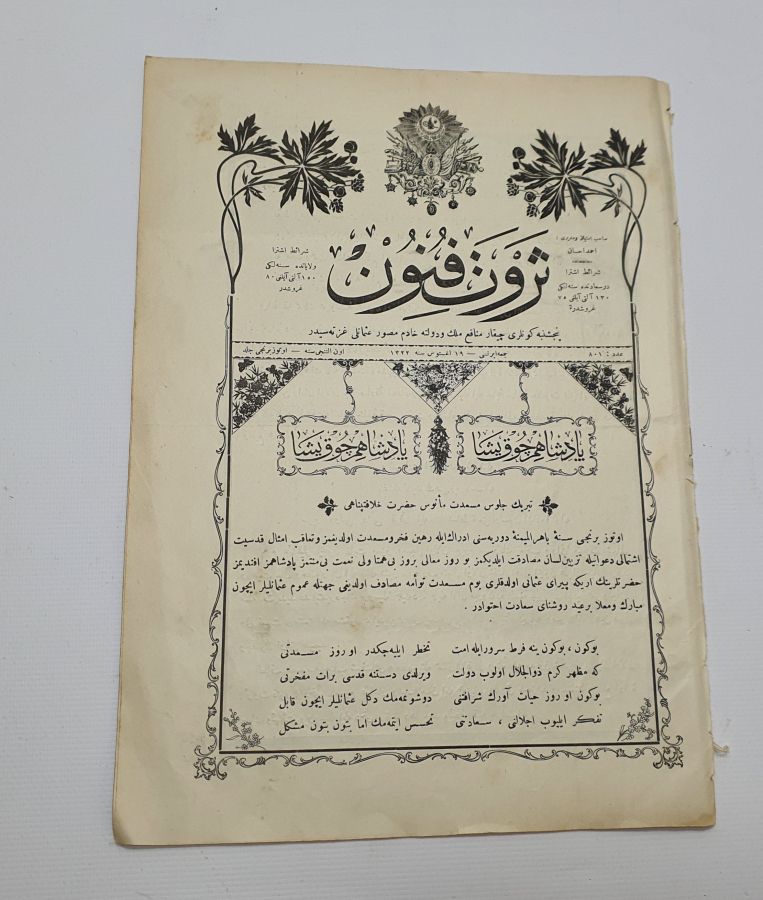 ثروت فنون
صاحب امتياز و مديرى :
احمد احسان
شرائط اشترا
درسعادتده سنه لكى
١٣٠ آلتى آيلغى ٧٥
غروشدر
شرائط اشترا
ولاياتده سنه لكى
١٥٠ آلتى آيلغى ٨٠
غروشدر
پنجشنبه كونلرى چيقار منافع ملك و دولته خادم مصور عثمانلى غزته سيدر
عدد : ٨٠١
جمعه ايرتسى — ١٩ اغستوس سنه ١٣٢٢
اون التنجى سنه — اوتوز برنجى جلد
پادشاهم چوق يشا
پادشاهم چوق يشا
تبريك جلوس مسعدت مأنوس حضرت خلافتپناهى
اوتوز برنجى سنۀ باهر الميمنۀ دوريه سنى ادراك ايله رهين فخر و مسعدت اولديغمز و تعاقب امثال قدسيت
اشتمالى دعواتيله تزيين لسان مصادقت ايلديكمز بو روز معالى بروز بى همتا ولى نعمت بى منتمز پادشاهمز افنديمز
حضرتلرينك اريكه پيراى عثمانى اولدقلرى يوم مسعدت توأمه مصادف اولديغى جهتله عموم عثمانليلر ايچون
مبارك و معلا بر عيد روشناى سعادت احتوادر .
بوكون ، بوكون ينه فرط سرور ايله امت
تخطر ايليه جكدر او روز مسعدتى
كه مظهر كرم ذوالجلال اولوب دولت
ويرلدى دستنه قدسى برات مفخرتى
بوكون او روز حيات آورك شرافتنى
دوشونمه مك دكل عثمانليلر ايچون قابل
تفكر ايليوب اجلالنى ، سعادتنى
تحسس ايتمه مك اما بتون بتون مشكل